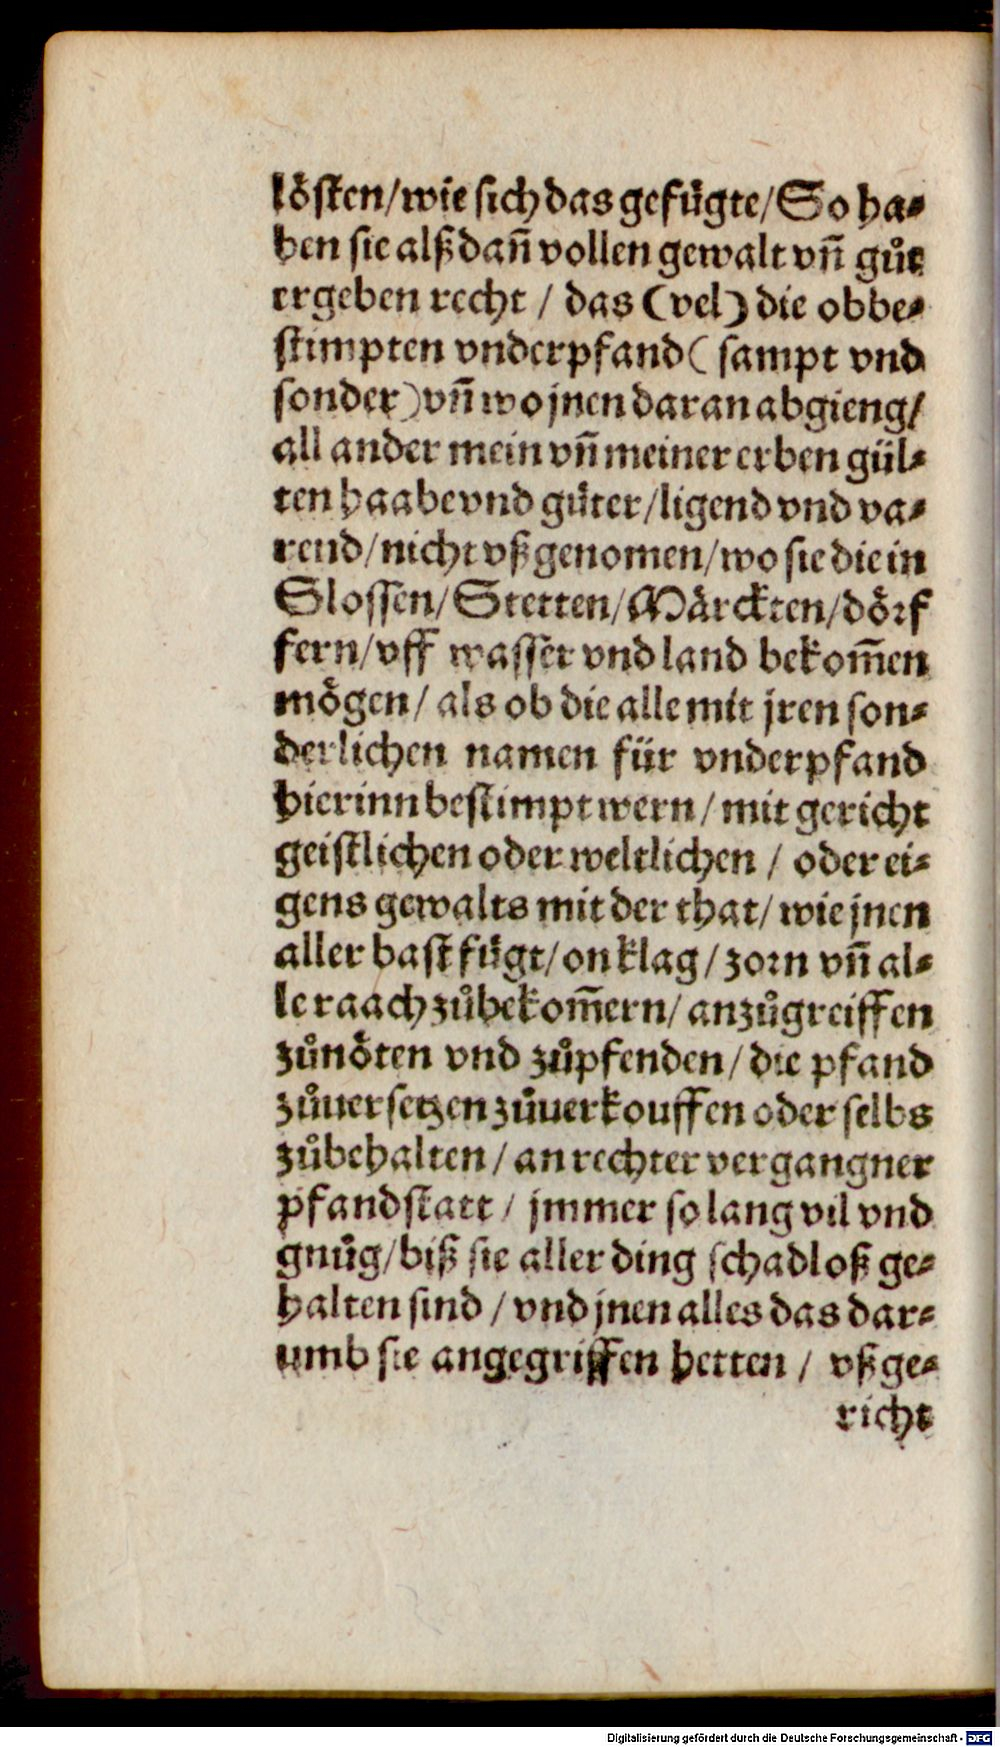 lösten/wie sich das gefügte/So ha⸗
ben sie alß dañ vollen gewalt vñ gůt
ergeben recht / das (vel) die obbe⸗
stimpten vnderpfand( sampt vnd
sonder) vñ wo jnen daran abgieng/
all ander mein vñ meiner erben gül⸗
ten haabe vnd güter/ligend vnd va⸗
rend/nicht vßgenomen/wo sie die in
Slossen/Stetten/Märckten/dörf
fern/vff wasser vnd land bekom̃en
mögen/ als ob die alle mit jren son⸗
derlichen namen für vnderpfand
hierinn bestimpt wern/ mit gericht
geistlichen oder weltlichen / oder ei⸗
gens gewalts mit der that/ wie jnen
aller bast fügt/on klag/ zorn vñ al⸗
le raach zůbekom̃ern/ anzůgreiffen
zůnöten vnd zůpfenden/ die pfand
zůuersetzen zůuerkouffen oder selbs
zůbehalten/ an rechter vergangner
pfandstatt/ jmmer so lang vil vnd
gnůg/biß sie aller ding schadloß ge⸗
halten sind / vnd jnen alles das dar⸗
umb sie angegriffen hetten / vßge⸗
richt
Digitalisierung gefördert durch die Deutsche Forschungsgemeinschaft - DFG